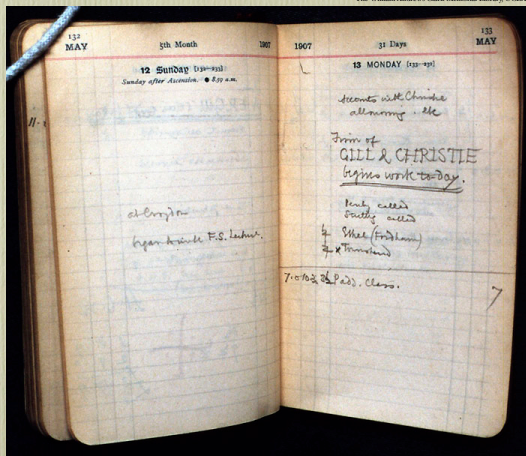 132
MAY
5th Month
1907
12 Sunday [132-233]
Sunday after Ascension. ● 8.59 a.m.
11.
at Croydon
began to write F.S. Lecture.
133
MAY
1907
31 Days
13 MONDAY [133-232]
Accounts with Christie
all morning. etc
Firm of
GILL & CHRISTIE
begins work to-day.
called
called
Ethel (Fordham)
x Townshend
Padd. Class.
7